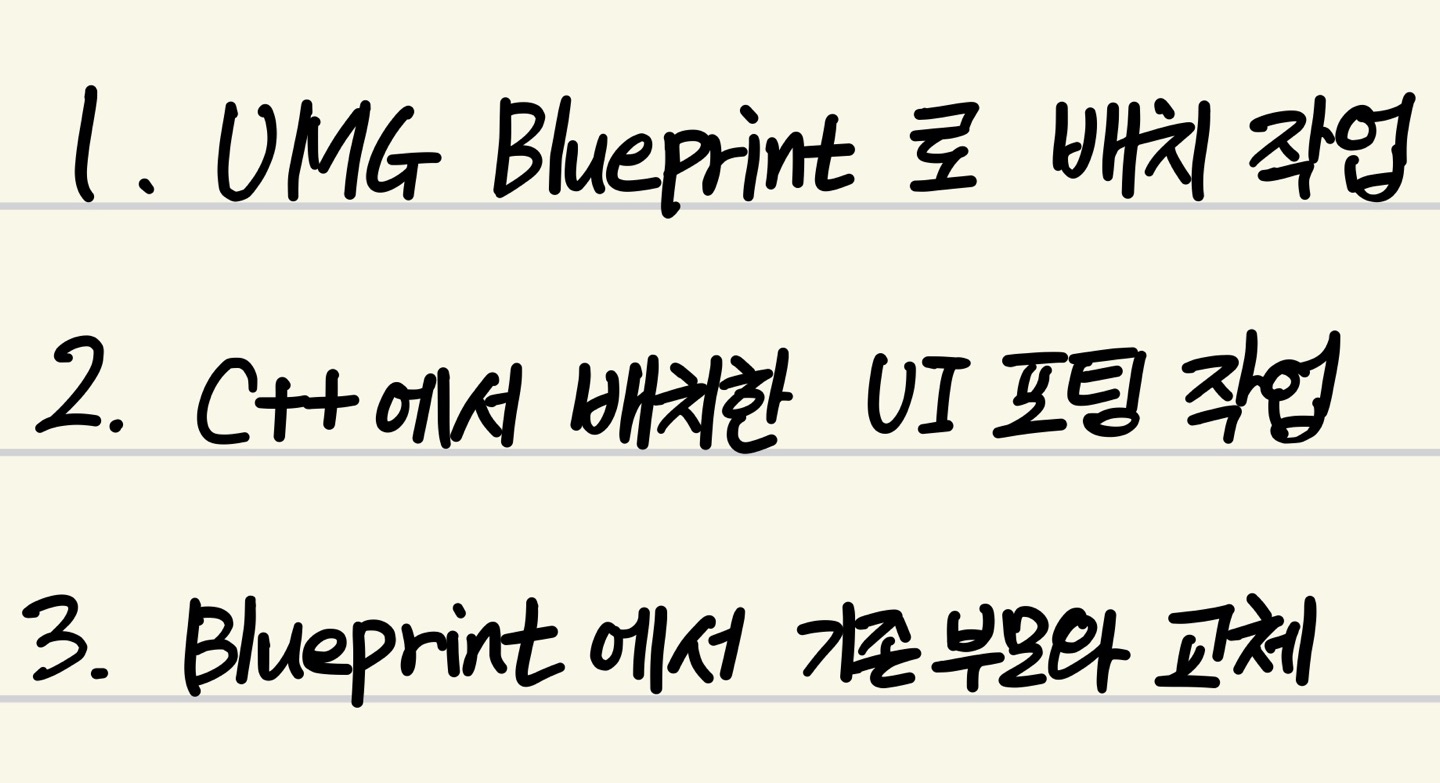 1. UMG Blueprint 로 배치 작업
2. C++에서 배치한 UI 포팅 작업
3. Blueprint에서 기존 부모와 교체